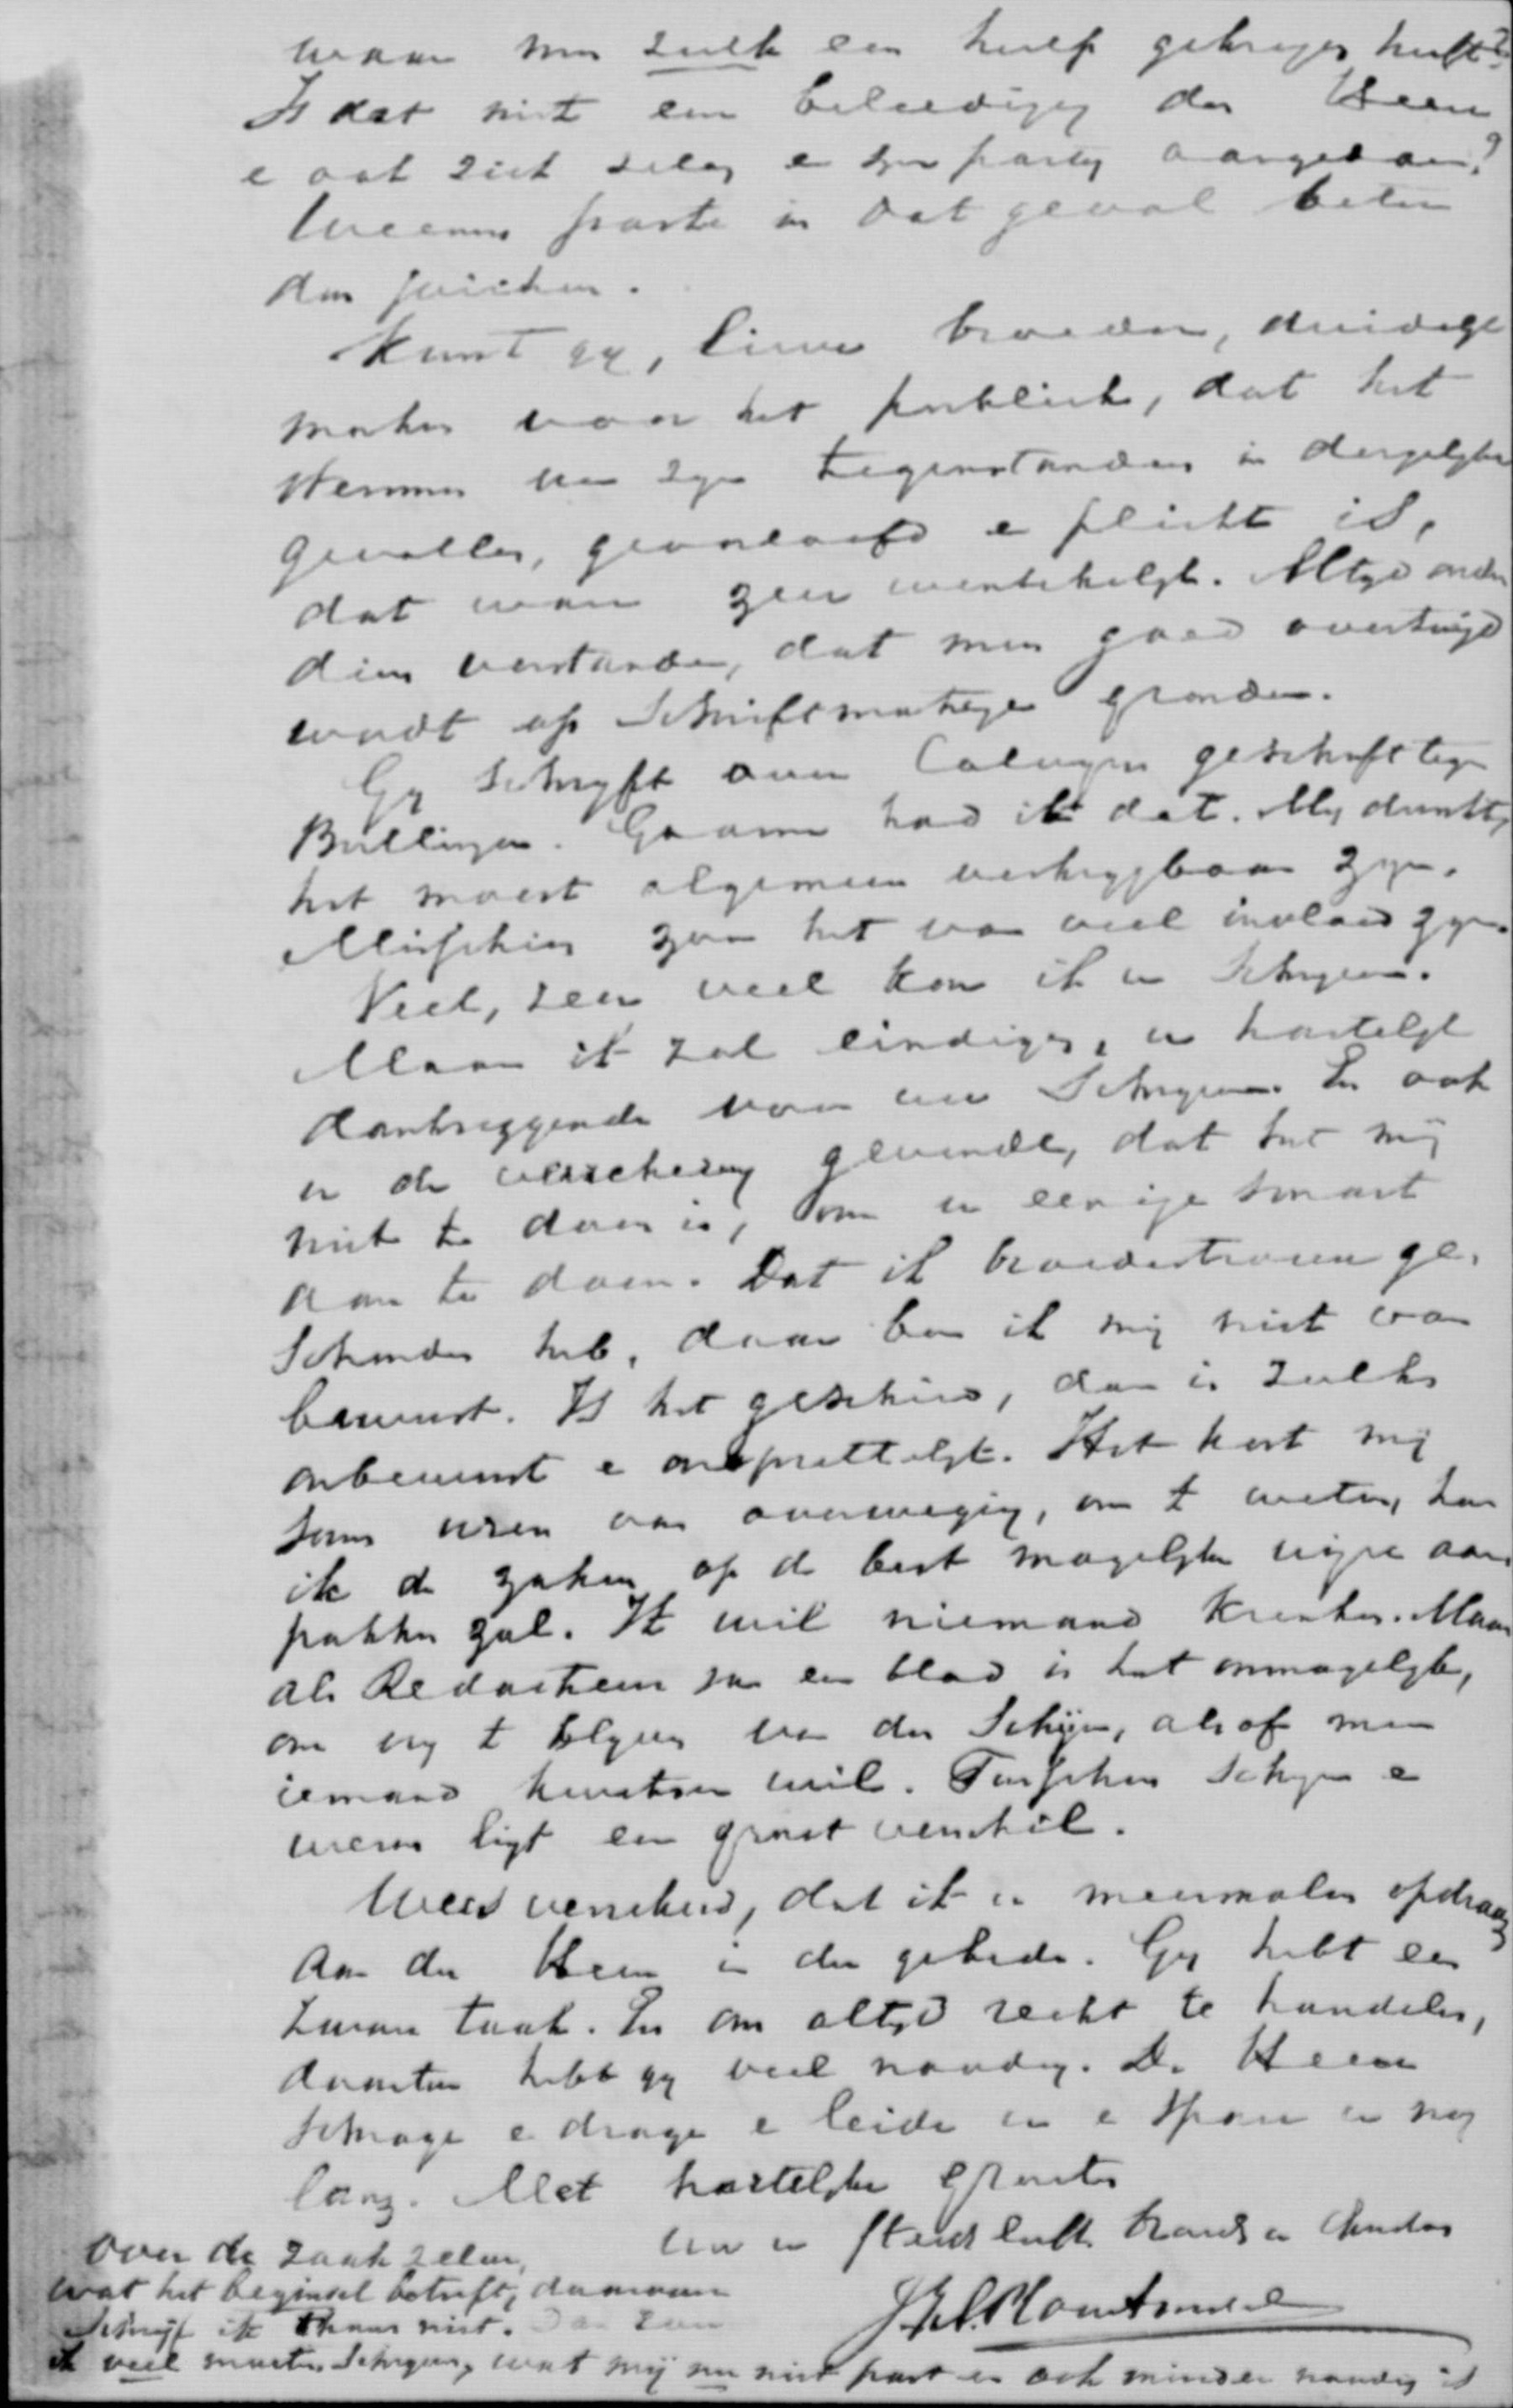 waar men zulk een hulp gekregen heeft?
Is dat niet een beleediging den Heere
e ook zich zelv e zyn party aangedaan?
Weenen paste in dat geval beter
dan juichen.
Kunt gy, lieve broeder, duidelyk
maken voor het publiek, dat het
stemmen van zyn tegenstanders in dergelyke
gevallen, geoorloofd e plicht is,
dat ware zeer wenschelyk. Altyd onder
dien verstande, dat men goed overtuigd
wordt op Schriftmatige gronden.
Gy schryft over Calvyns geschrift tegen
Bullinger. Gaarne had ik dat. My dunkt,
het moest algemeen verkrygbaar zyn.
Misschien zou het van veel invloed zyn.
Veel, zeer veel kon ik u schryven.
Maar ik zal eindigen, u hartelyk
dankzeggende voor uw schryven. En ook
u de verzekering gevende, dat het mij
niet te doen is, om u eenige smart
aan te doen. Dat ik broedertrouw ge-
schonden heb, daar ben ik mij niet van
bewust. Is het geschied, dan is zulks
onbewust e onopzettelyk. Het kost mij
soms uren van overweging, om t weten, hoe
ik de zaken op de best mogelyke wijze aan
pakken zal. Ik wil niemand krenken. Maar
als Redacteur van een blad is het onmogelyk,
om vry t blyven van den schijn, alsof men
iemand kwetsen wil. Tusschen schyn e
wezen ligt een groot verschil.
Wees verzekerd, dat ik u meermalen opdraag
aan den Heere in den gebede. Gy hebt een
zware taak. En om altyd recht te handelen,
daartoe hebt gy veel noodig. De Heere
schrage e drage e leide u e spare u nog
lang. Met hartelyke groeten
Uw u steeds liefh. broeder
over de zaak zelve,
wat het beginsel betreft, daarvan
schryf ik thans niet. Dan zou
ik veel moeten schryven, wat mij nu niet past en ook minder noodig is